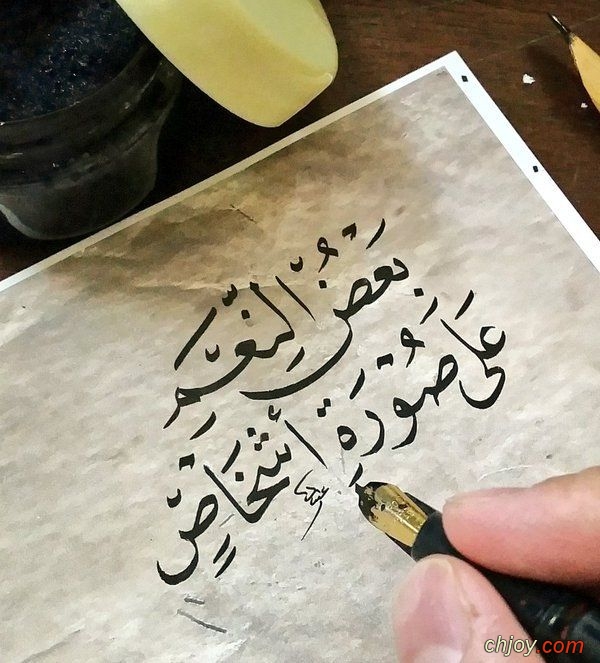 بَعْضُ النِّعَمِ
عَلَى صُوْرَةِ أَشْخَاصٍ
chjoy.com